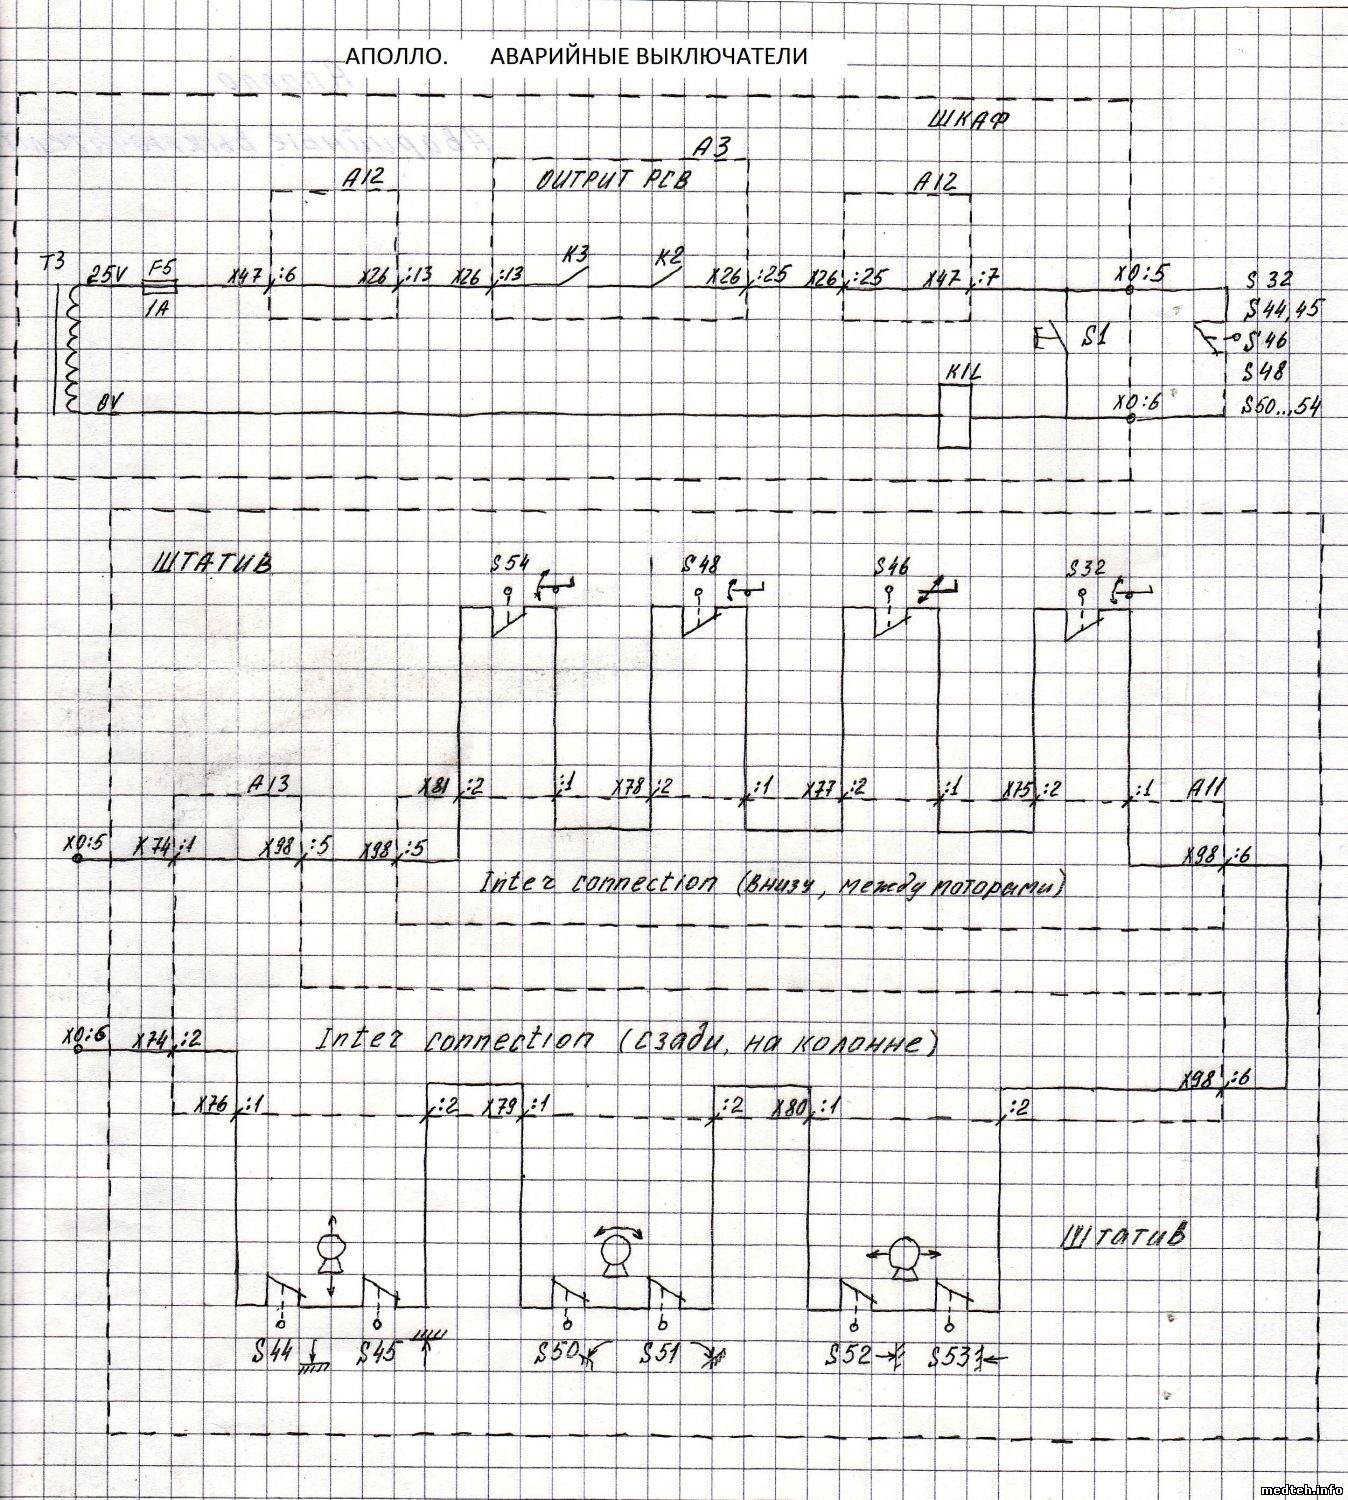 АПОЛЛО. АВАРИЙНЫЕ ВЫКЛЮЧАТЕЛИ
ШКАФ
A3
A12 OUTPUT PCB A12
T3 25V F5 X47 :6 X26 :13 X26 :13 K3 K2 X26 :25 X26 :25 X47 :7 X0:5 S 32
1A S44,45
S1 S46
K1L S48
0V X0:6 S50...54
ШТАТИВ S54 S48 S46 S32
A13 X81 :2 :1 X78 :2 :1 X77 :2 :1 X75 :2 :1 A11
X0:5 X74 :1 X98 :5 X98 :5 X98 :6
Inter connection (внизу, между моторами)
X0:6 X74 :2 Inter connection (сзади, на колонне)
X98 :6
X76 :1 :2 X79 :1 :2 X80 :1 :2
Штатив
S44 S45 S50 S51 S52 S53
medteh.info